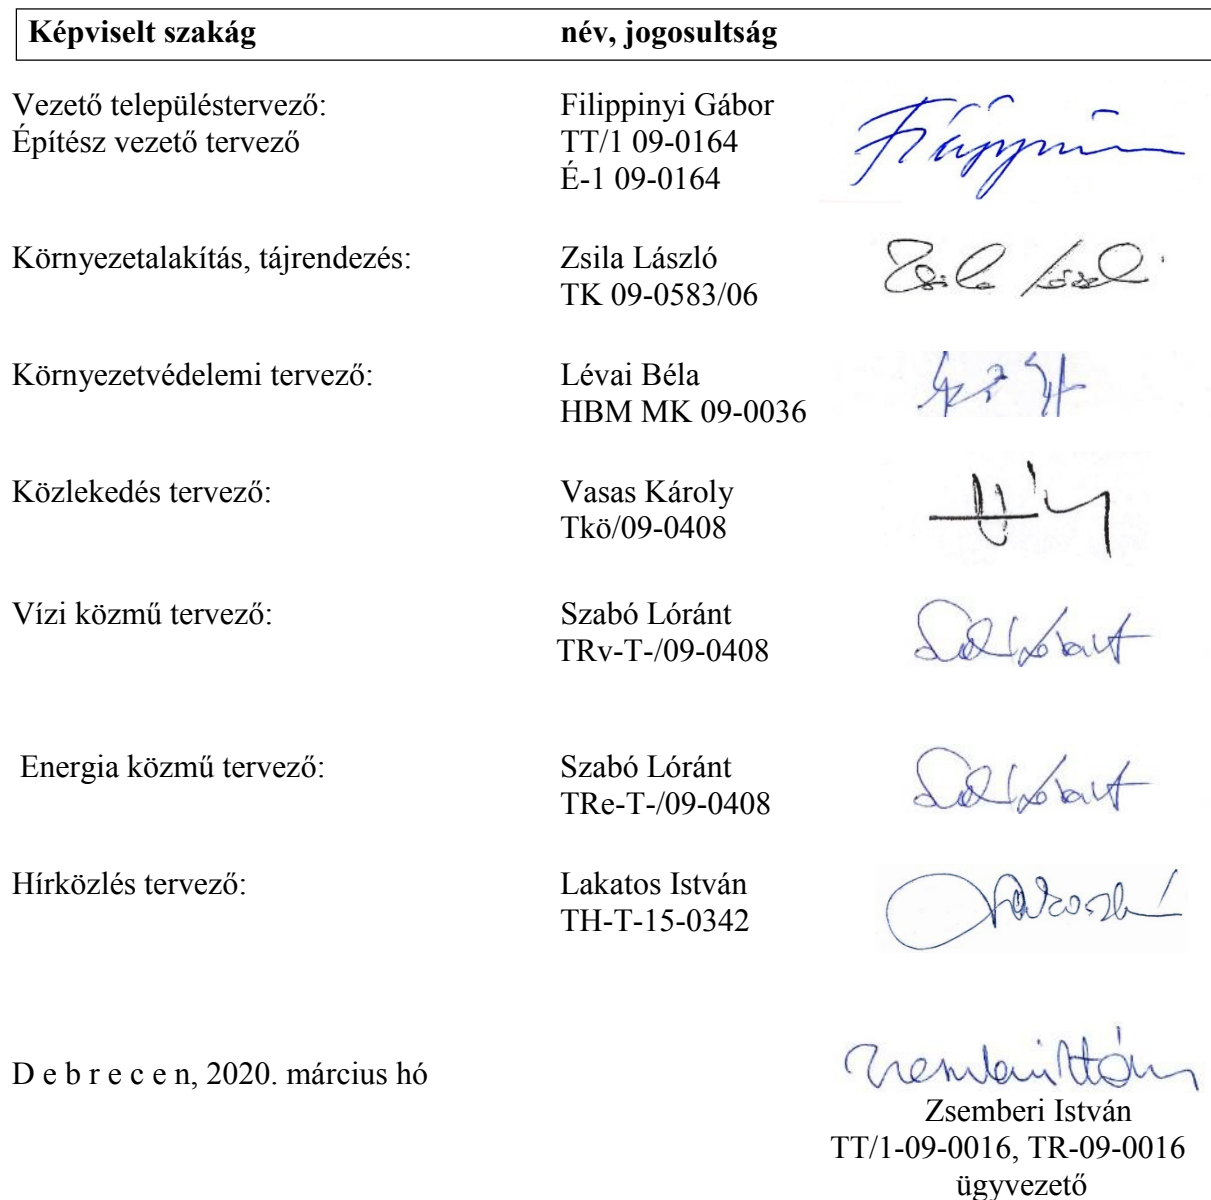 Képviselt szakág név, jogosultság
Vezető településtervező: Filippinyi Gábor
Építész vezető tervező TT/1 09-0164
É-1 09-0164
Környezetalakítás, tájrendezés: Zsila László
TK 09-0583/06
Környezetvédelemi tervező: Lévai Béla
HBM MK 09-0036
Közlekedés tervező: Vasas Károly
Tkö/09-0408
Vízi közmű tervező: Szabó Lóránt
TRv-T-/09-0408
Energia közmű tervező: Szabó Lóránt
TRe-T-/09-0408
Hírközlés tervező: Lakatos István
TH-T-15-0342
D e b r e c e n, 2020. március hó
Zsemberi István
TT/1-09-0016, TR-09-0016
ügyvezető